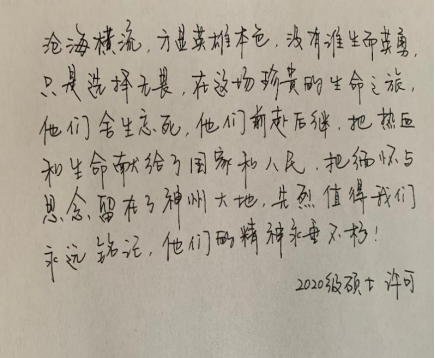 沧海横流，方显英雄本色，没有谁生而英勇，
只是选择无畏，在这场珍贵的生命之旅，
他们舍生忘死，他们前赴后继，把热血
和生命献给了国家和人民，把缅怀与
思念留在了神州大地，先烈值得我们
永远铭记，他们的精神永垂不朽！
2020级硕士 许可